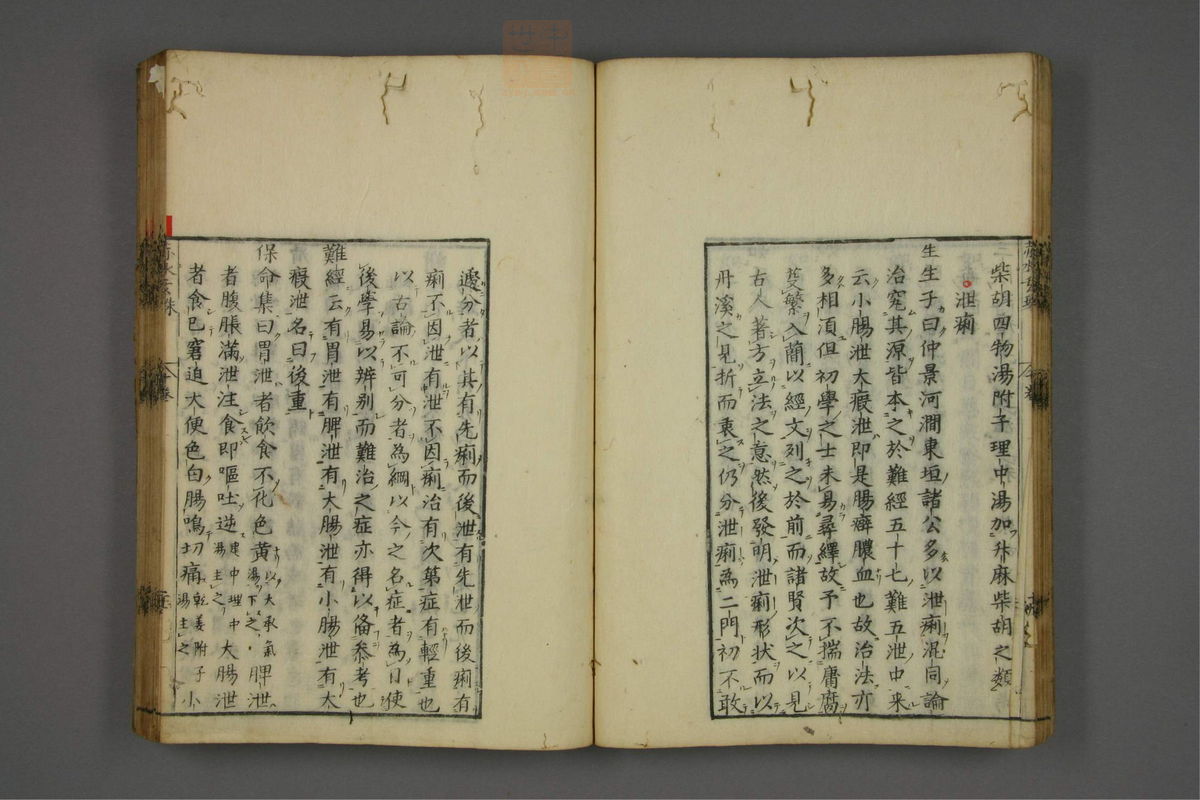 柴胡四物湯附子理中湯加升麻柴胡之類
泄痢
生生子曰仲景河澗東垣諸公多以泄痢混同論
治究其源皆本之於難經五十七難五泄中来
云小腸泄大瘕泄即是腸癖膿血也故治法亦
多相湏但初學之士未易尋繹故予不揣庸腐
芟繁入蕳以經文列之於前而諸賢次之以見
古人著方立法之意然後發明泄痢形状而以
丹溪之見折而衷之仍分泄痢為二門初不敢
邊分者以其有先痢而後泄有先泄而後痢有
痢不因泄有泄不因痢治有次第症有輕重也
以古論不可分者為綱以今之名症者為目使
後學易以辨别而難治之症亦得以俻叅考也
難經云有胃泄有脾泄有大腸泄有小腸泄有大
瘕泄名曰後重
保命集曰胃泄者飲食不化色黄以大承氣湯下之脾泄
者腹脹滿泄注食即嘔吐逆建中理中湯主之大腸泄
者食已窘迫大便色白腸鳴切痛乾姜附子湯主之小